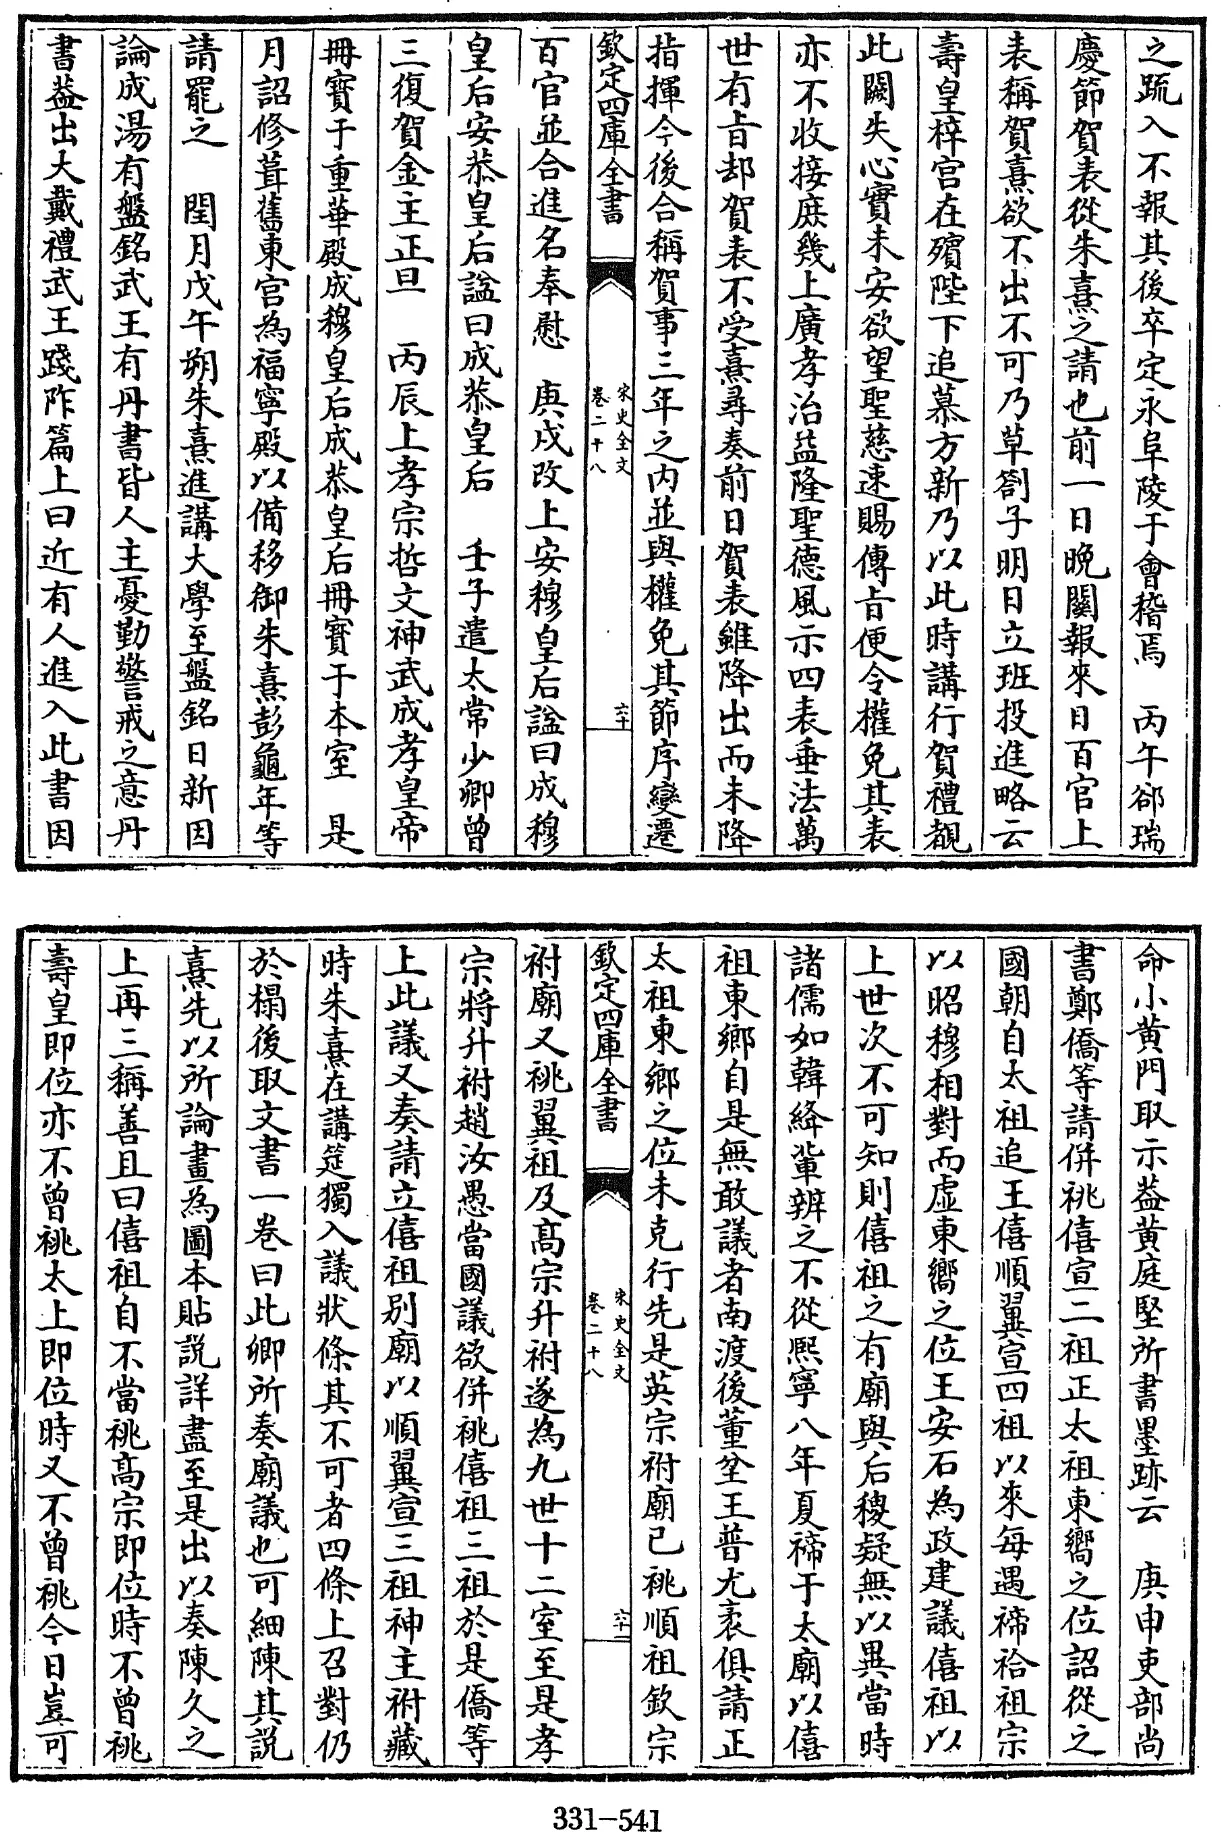 之䟽入不報其後卒定永阜陵于會稽焉　丙午郤瑞
慶節賀表從朱熹之請也前一日晚關報來日百官上
表稱賀熹欲不出不可乃草劄子明日立班投進略云
壽皇梓宫在殯陛下追慕方新乃以此時講行賀禮覩
此闕失心實未安欲望聖慈速賜傳㫖便令權免其表
亦不收接庶幾上廣孝治益隆聖德風示四表垂法萬
世有㫖却賀表不受熹尋奏前日賀表雖降出而未降
指揮今後合稱賀事三年之内並與權免其節序變遷
欽定四庫全書
宋史全文
卷二十八
六十
百官並合進名奉慰　庚戌改上安穆皇后諡曰成穆
皇后安恭皇后諡曰成恭皇后　壬子遣太常少卿曾
三復賀金主正旦　丙辰上孝宗哲文神武成孝皇帝
冊寳于重華殿成穆皇后成恭皇后冊寳于本室　是
月詔修葺舊東宫為福寧殿以備移御朱熹彭龜年等
請罷之　閏月戊午朔朱熹進講大學至盤銘日新因
論成湯有盤銘武王有丹書皆人主憂勤警戒之意丹
書葢出大戴禮武王踐阼篇上曰近有人進入此書因
命小黄門取示葢黄庭堅所書墨跡云　庚申吏部尚
書鄭僑等請併祧僖宣二祖正太祖東嚮之位詔從之
國朝自太祖追王僖順翼宣四祖以來每遇禘祫祖宗
以昭穆相對而虚東嚮之位王安石為政建議僖祖以
上世次不可知則僖祖之有廟與后稷疑無以異當時
諸儒如韓絳輩辨之不從熙寧八年夏禘于太廟以僖
祖東鄉自是無敢議者南渡後董弅王普尤袤俱請正
太祖東鄉之位未克行先是英宗祔廟已祧順祖欽宗
欽定四庫全書
宋史全文
卷二十八
六十
祔廟又祧翼祖及髙宗升祔遂為九世十二室至是孝
宗將升祔趙汝愚當國議欲併祧僖祖三祖於是僑等
上此議又奏請立僖祖别廟以順翼宣三祖神主祔藏
時朱熹在講筵獨入議狀條其不可者四條上召對仍
於榻後取文書一巻曰此卿所奏廟議也可細陳其説
熹先以所論畫為圖本貼説詳盡至是出以奏陳久之
上再三稱善且曰僖祖自不當祧髙宗即位時不曾祧
壽皇即位亦不曾祧太上即位時又不曾祧今日豈可
331-541